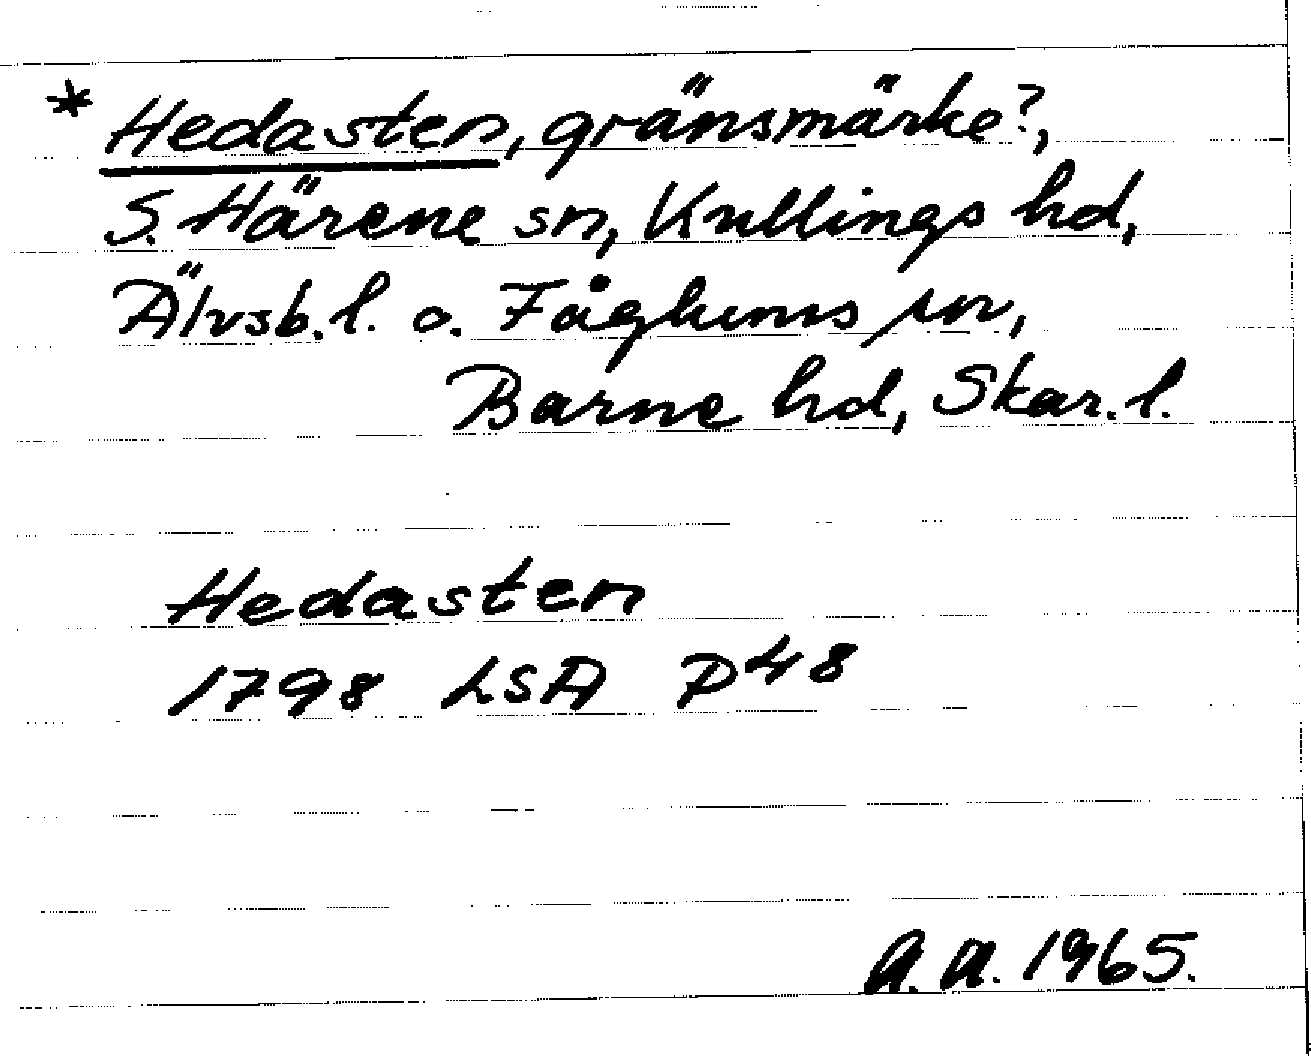 * Hedasten, gränsmärke?,
S. Härene sn, Kullings hd,
Älvsb. l. o. Fåglums sn,
Barne hd, Skar. l.
Hedasten
1798 LSA P48
A. A. 1965.